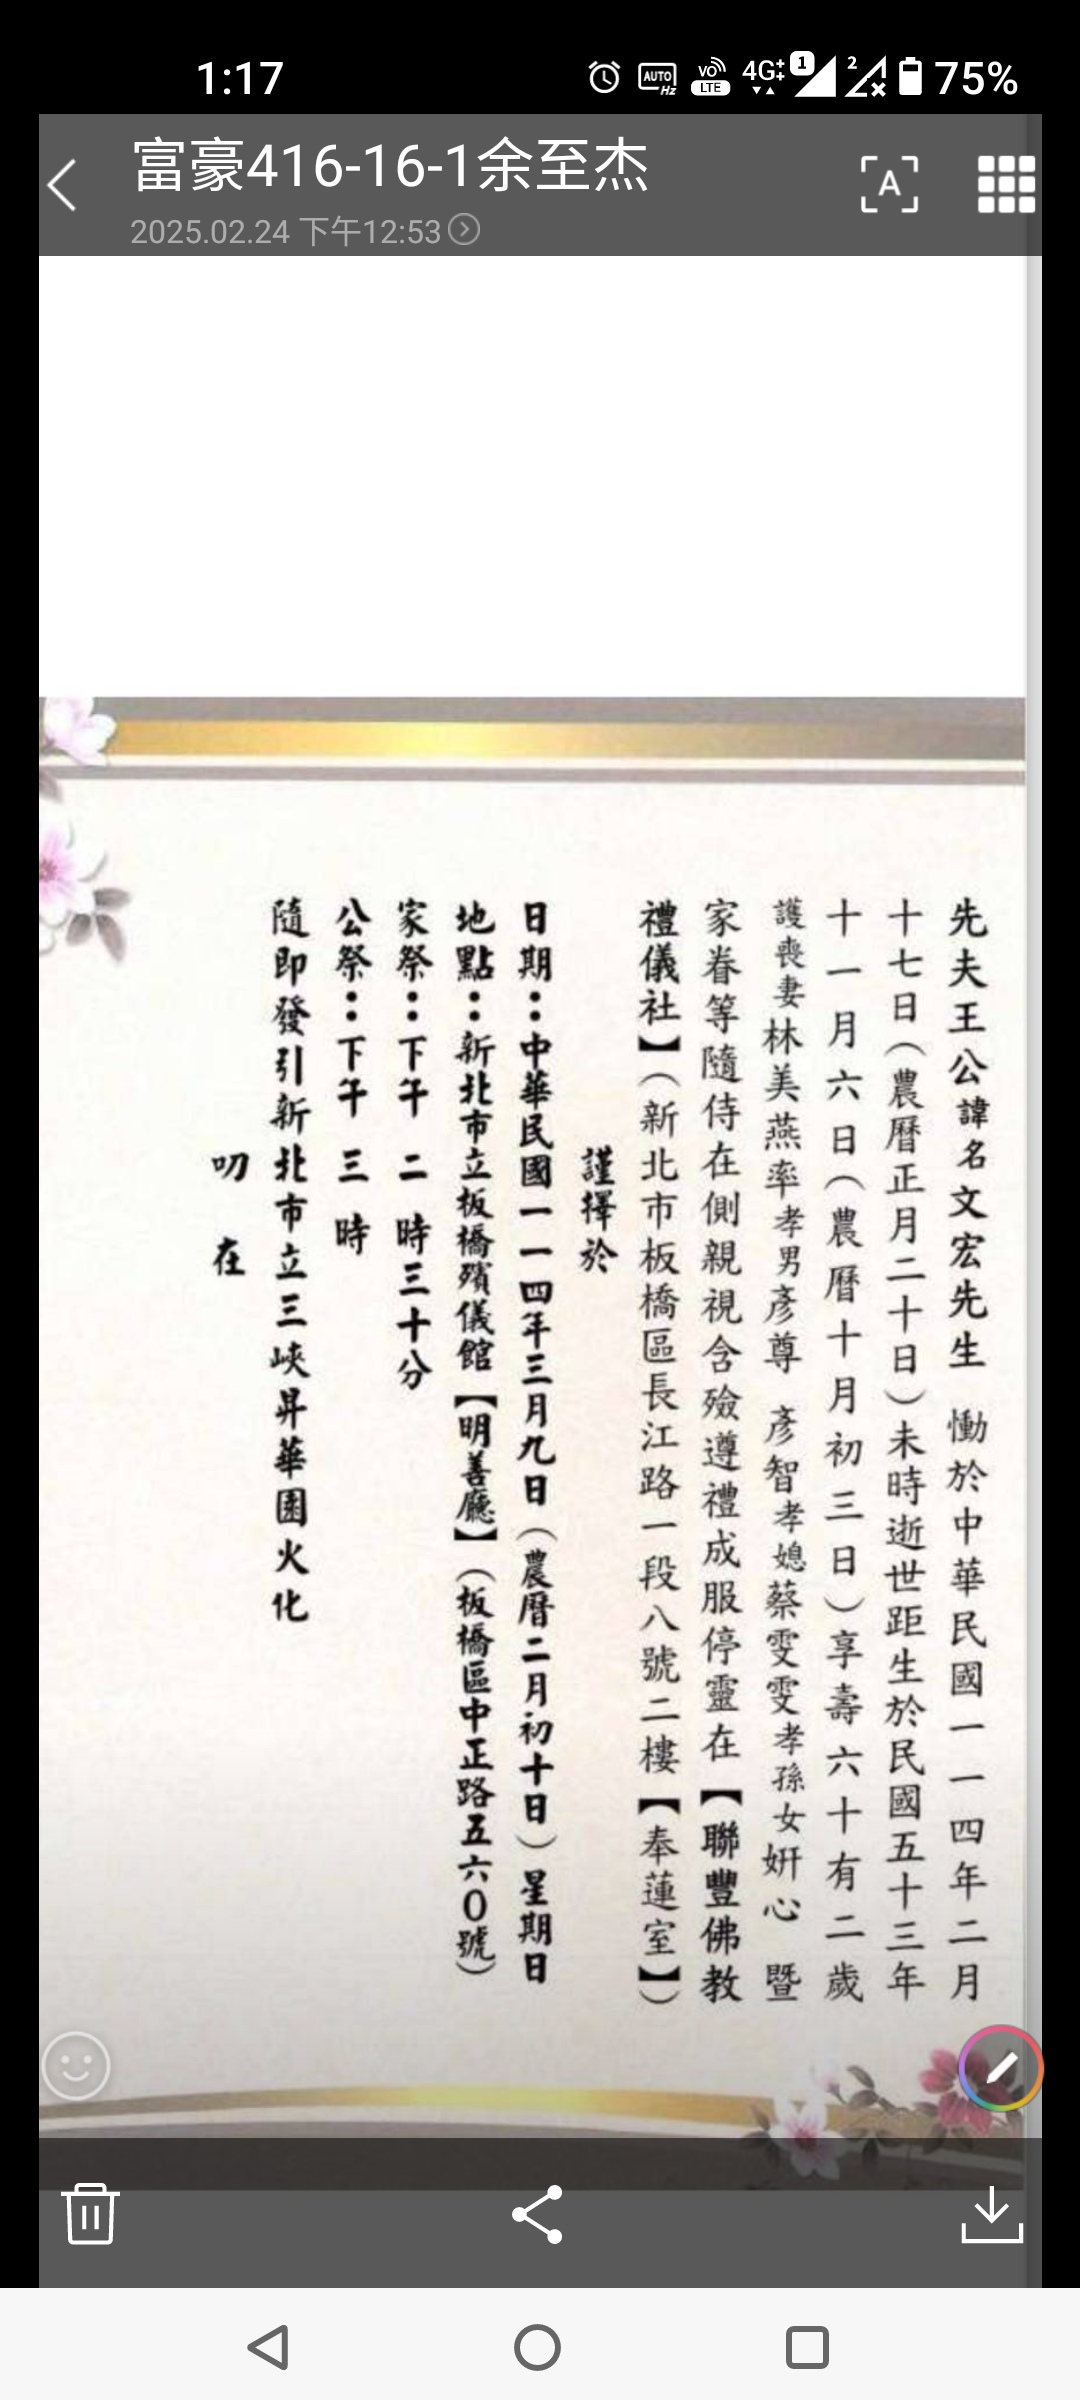 1:17
AUTO Hz
VO LTE
4G+ 1 2
75%
富豪416-16-1余至杰
A
2025.02.24 下午12:53
先夫王公諱名文宏先生 慟於中華民國一一四年二月
十七日（農曆正月二十日）未時逝世距生於民國五十三年
十一月六日（農曆十月初三日）享壽六十有二歲
護喪妻林美燕率孝男彥尊 彥智孝媳蔡雯雯孝孫女妍心 暨
家眷等隨侍在側親視含殮遵禮成服停靈在【聯豐佛教
禮儀社】（新北市板橋區長江路一段八號二樓【奉蓮室】）
謹擇於
日期：中華民國一一四年三月九日（農曆二月初十日）星期日
地點：新北市立板橋殯儀館【明善廳】（板橋區中正路五六0號）
家祭：下午 二 時三十分
公祭：下午 三 時
隨即發引新北市立三峽昇華園火化
叨 在